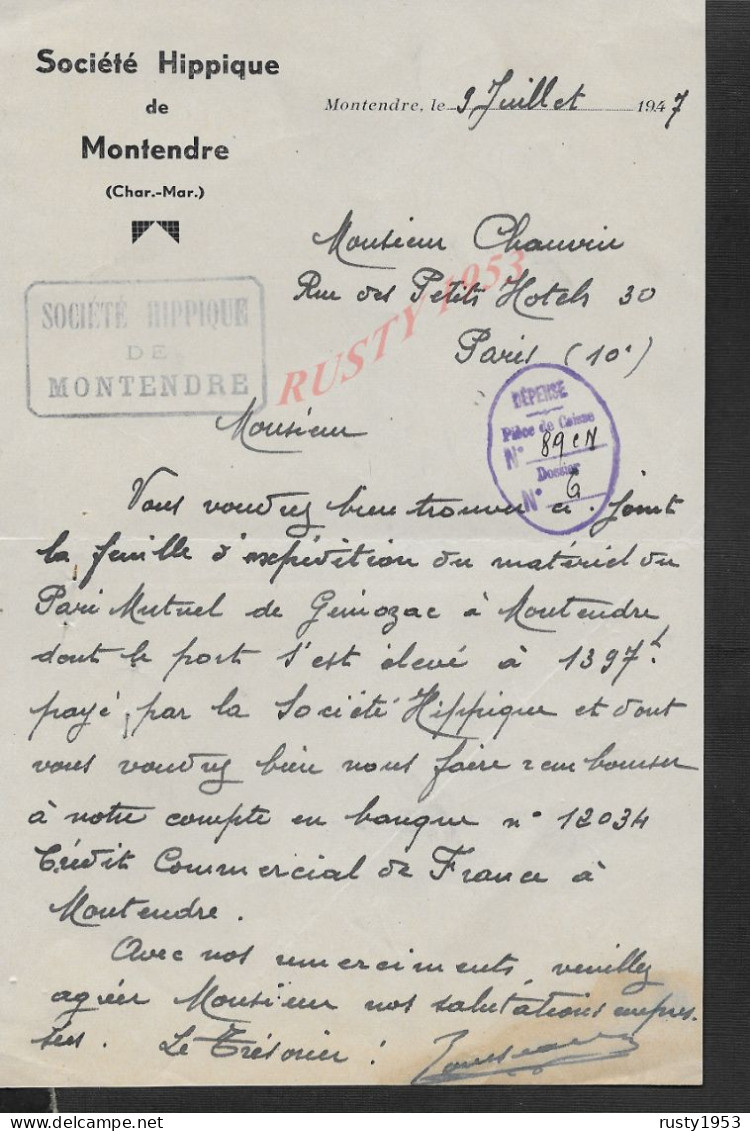 Société Hippique
de
Montendre
(Char.-Mar.)
Montendre, le 9 Juillet 1947
SOCIÉTÉ HIPPIQUE
DE
MONTENDRE
Monsieur Chauvin
Rue des Petits Hotels 30
Paris (10e)
RUSTY 1953
DÉPENSE
Pièce de Caisse
N° 89 CN
Dossier
N° 6
Monsieur
Vous voudrez bien trouver ci-joint
la feuille d'expédition du matériel du
Pari Mutuel de Gemozac à Montendre
dont le port s'est élevé à 1397f.
payé par la Société Hippique et dont
vous voudrez bien nous faire rembourser
à notre compte en banque n° 12034
Crédit Commercial de France à
Montendre.
Avec nos remerciments, veuillez
agréer Monsieur nos salutations empres-
sées. Le Trésorier :
rusty1953